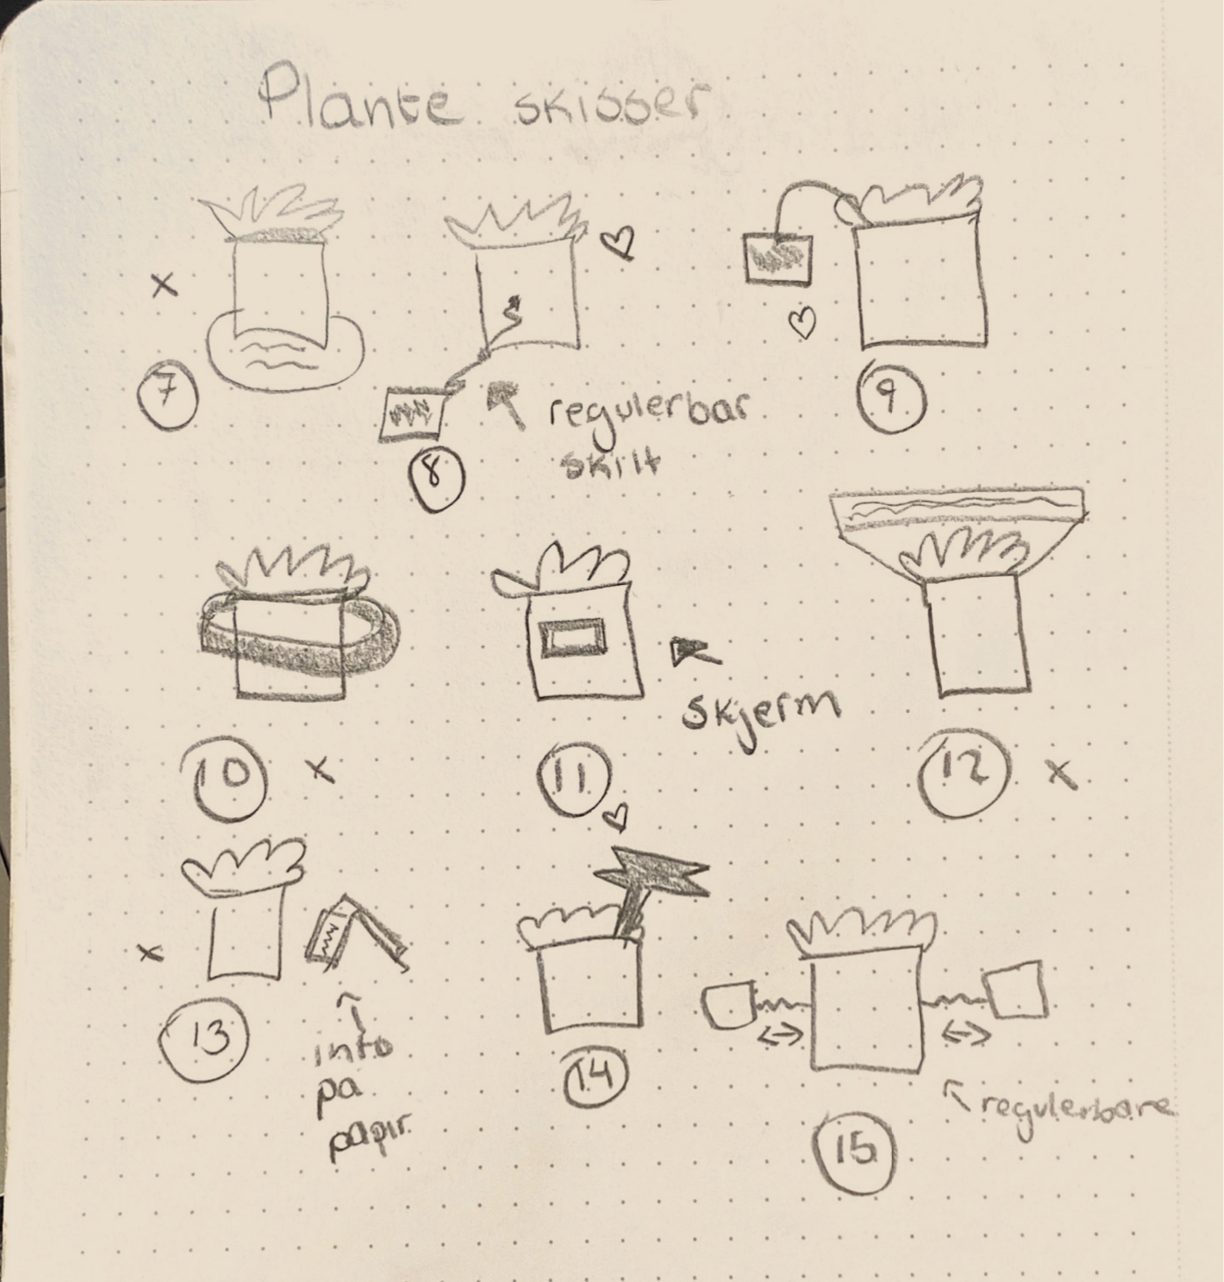 Plante skisser
x
7
8
regulerbar
skilt
9
10 x
11
skjerm
12 x
x
13
info
på
papir
14
15
regulerbare